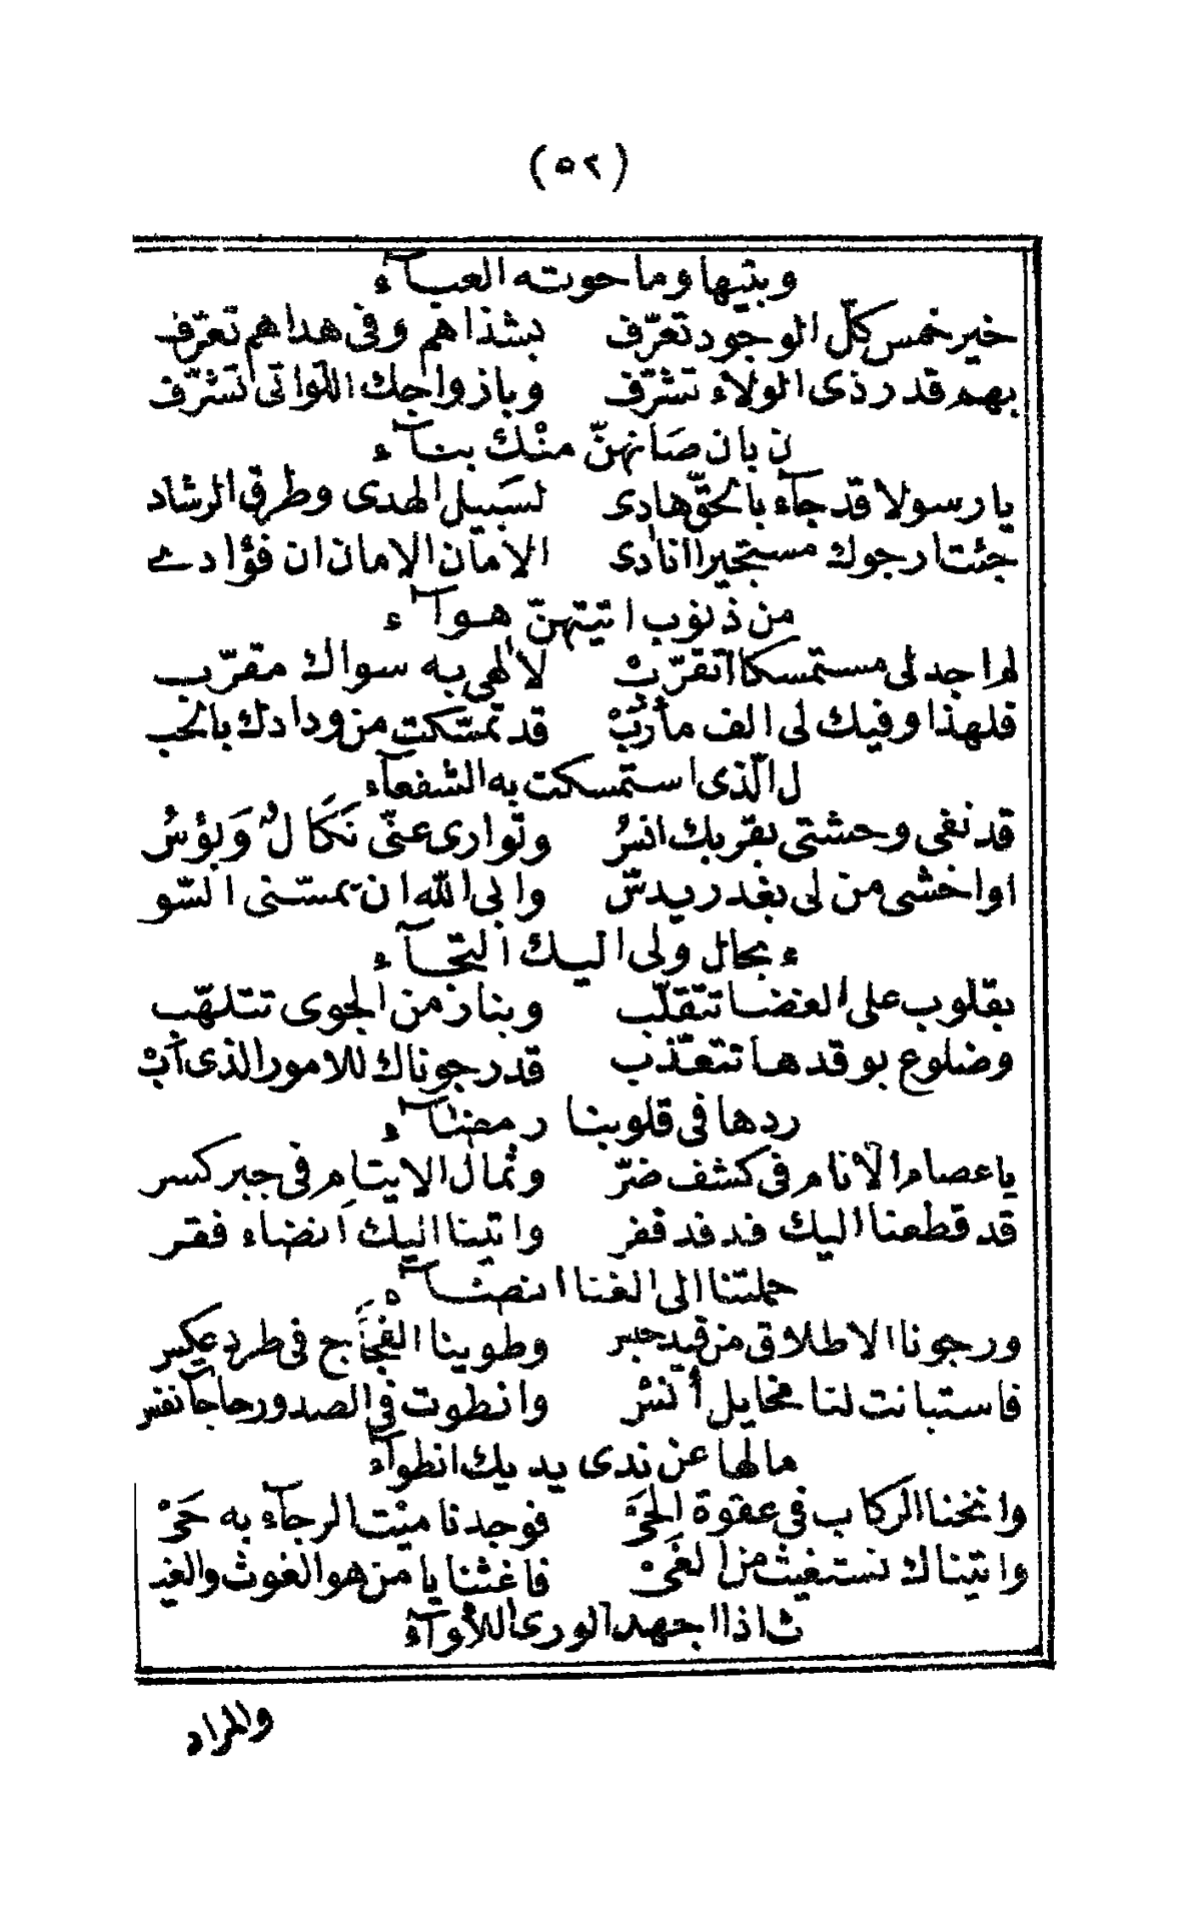 (٥٢)
وبنيها وما حوته العبآء
خير خمس كلّ الوجود تعرّف بشذاهم وفى هداهم تعرّف
بهم قدر ذى الولاء تشرّف وبازواجك اللّواتى تشرّف
ن بان صانهنّ منْك بنآء
يا رسولا قد جآء بالحقّ هادى لسَبيل الهدى وطرق الرشاد
جئت ارجوك مستجيرا انادى الامان الامان ان فؤادے
من ذنوب اتيتهنّ هوآء
لم اجد لى مستمسكا اتقرّبْ لالهى به سواك مقرّب
فلهذا وفيك لى الف مأربْ قد تمسّكت من ودادك بالحب
ل الّذى استمسكت به الشفعآء
قد نفى وحشتى بقربك انسٌ وتوارى عنّى نَكَالٌ وَبؤسُ
اواخشى من لى بغدر يدسّ وابى الله ان يمسّنى السّو
ء بحال ولى اليك التجآء
بقلوب على الغضا تتقلّب وبنار من الجوى تتلهّب
وضلوع بوقدها تتعذّب قد رجوناك للامور الذى آبْ
ردها فى قلوبنا رمضآء
يا عصام الانام فى كشف ضرّ وثمال الايتام فى جبر كسر
قد قطعنا اليك فدفد قفر واتينا اليك انضاء فقر
حملتنا الى الغنا انضآء
ورجونا الاطلاق من قيد وطوينا الفجَاج فى طرد
فاستبانت لنا مخايل أنشر وانطوت فى الصدور حاجات نفس
مالها عن ندى يديك انطوآء
وانخنا الركاب فى عقوة الحَىْ فوجدنا ميْت الرجآء به حَىْ
واتيناك نستغيث من الغَىْ فاغثنا يا من هو الغوث والغيـ
ث اذا اجهد الورى اللأوآء
والمراد